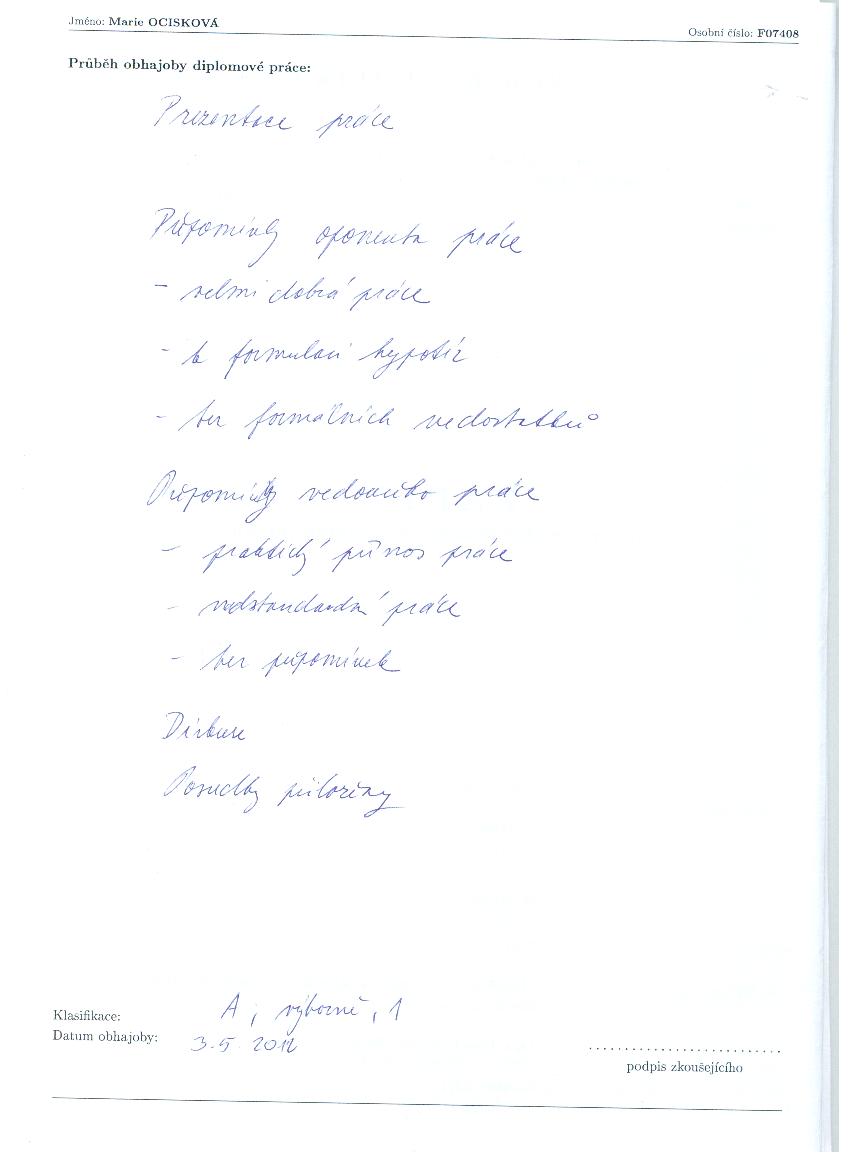 Jméno: Marie OCISKOVÁ
Osobní číslo: F07408
Průběh obhajoby diplomové práce:
Prezentace práce
Připomínky oponenta práce
- velmi dobrá práce
- k formulaci hypotéz
- bez formálních nedostatků
Připomínky vedoucího práce
- praktický přínos práce
- nadstandardní práce
- bez připomínek
Diskuse
Posudky přiloženy
Klasifikace: A, výborně, 1
Datum obhajoby: 3.5 2012
podpis zkoušejícího